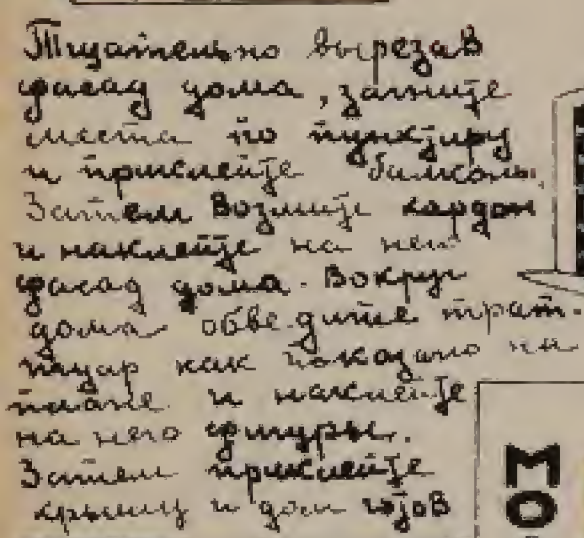 Тщательно вырезав
фасад дома, загните
места по пунктиру
и приклейте балконы.
Затем возмите кардон
и наклейте на него
фасад дома. Вокруг
дома обведите трат-
туар как показано на
плане и наклейте
на него фигуры.
Затем приклейте
крышу и дом готов
МО